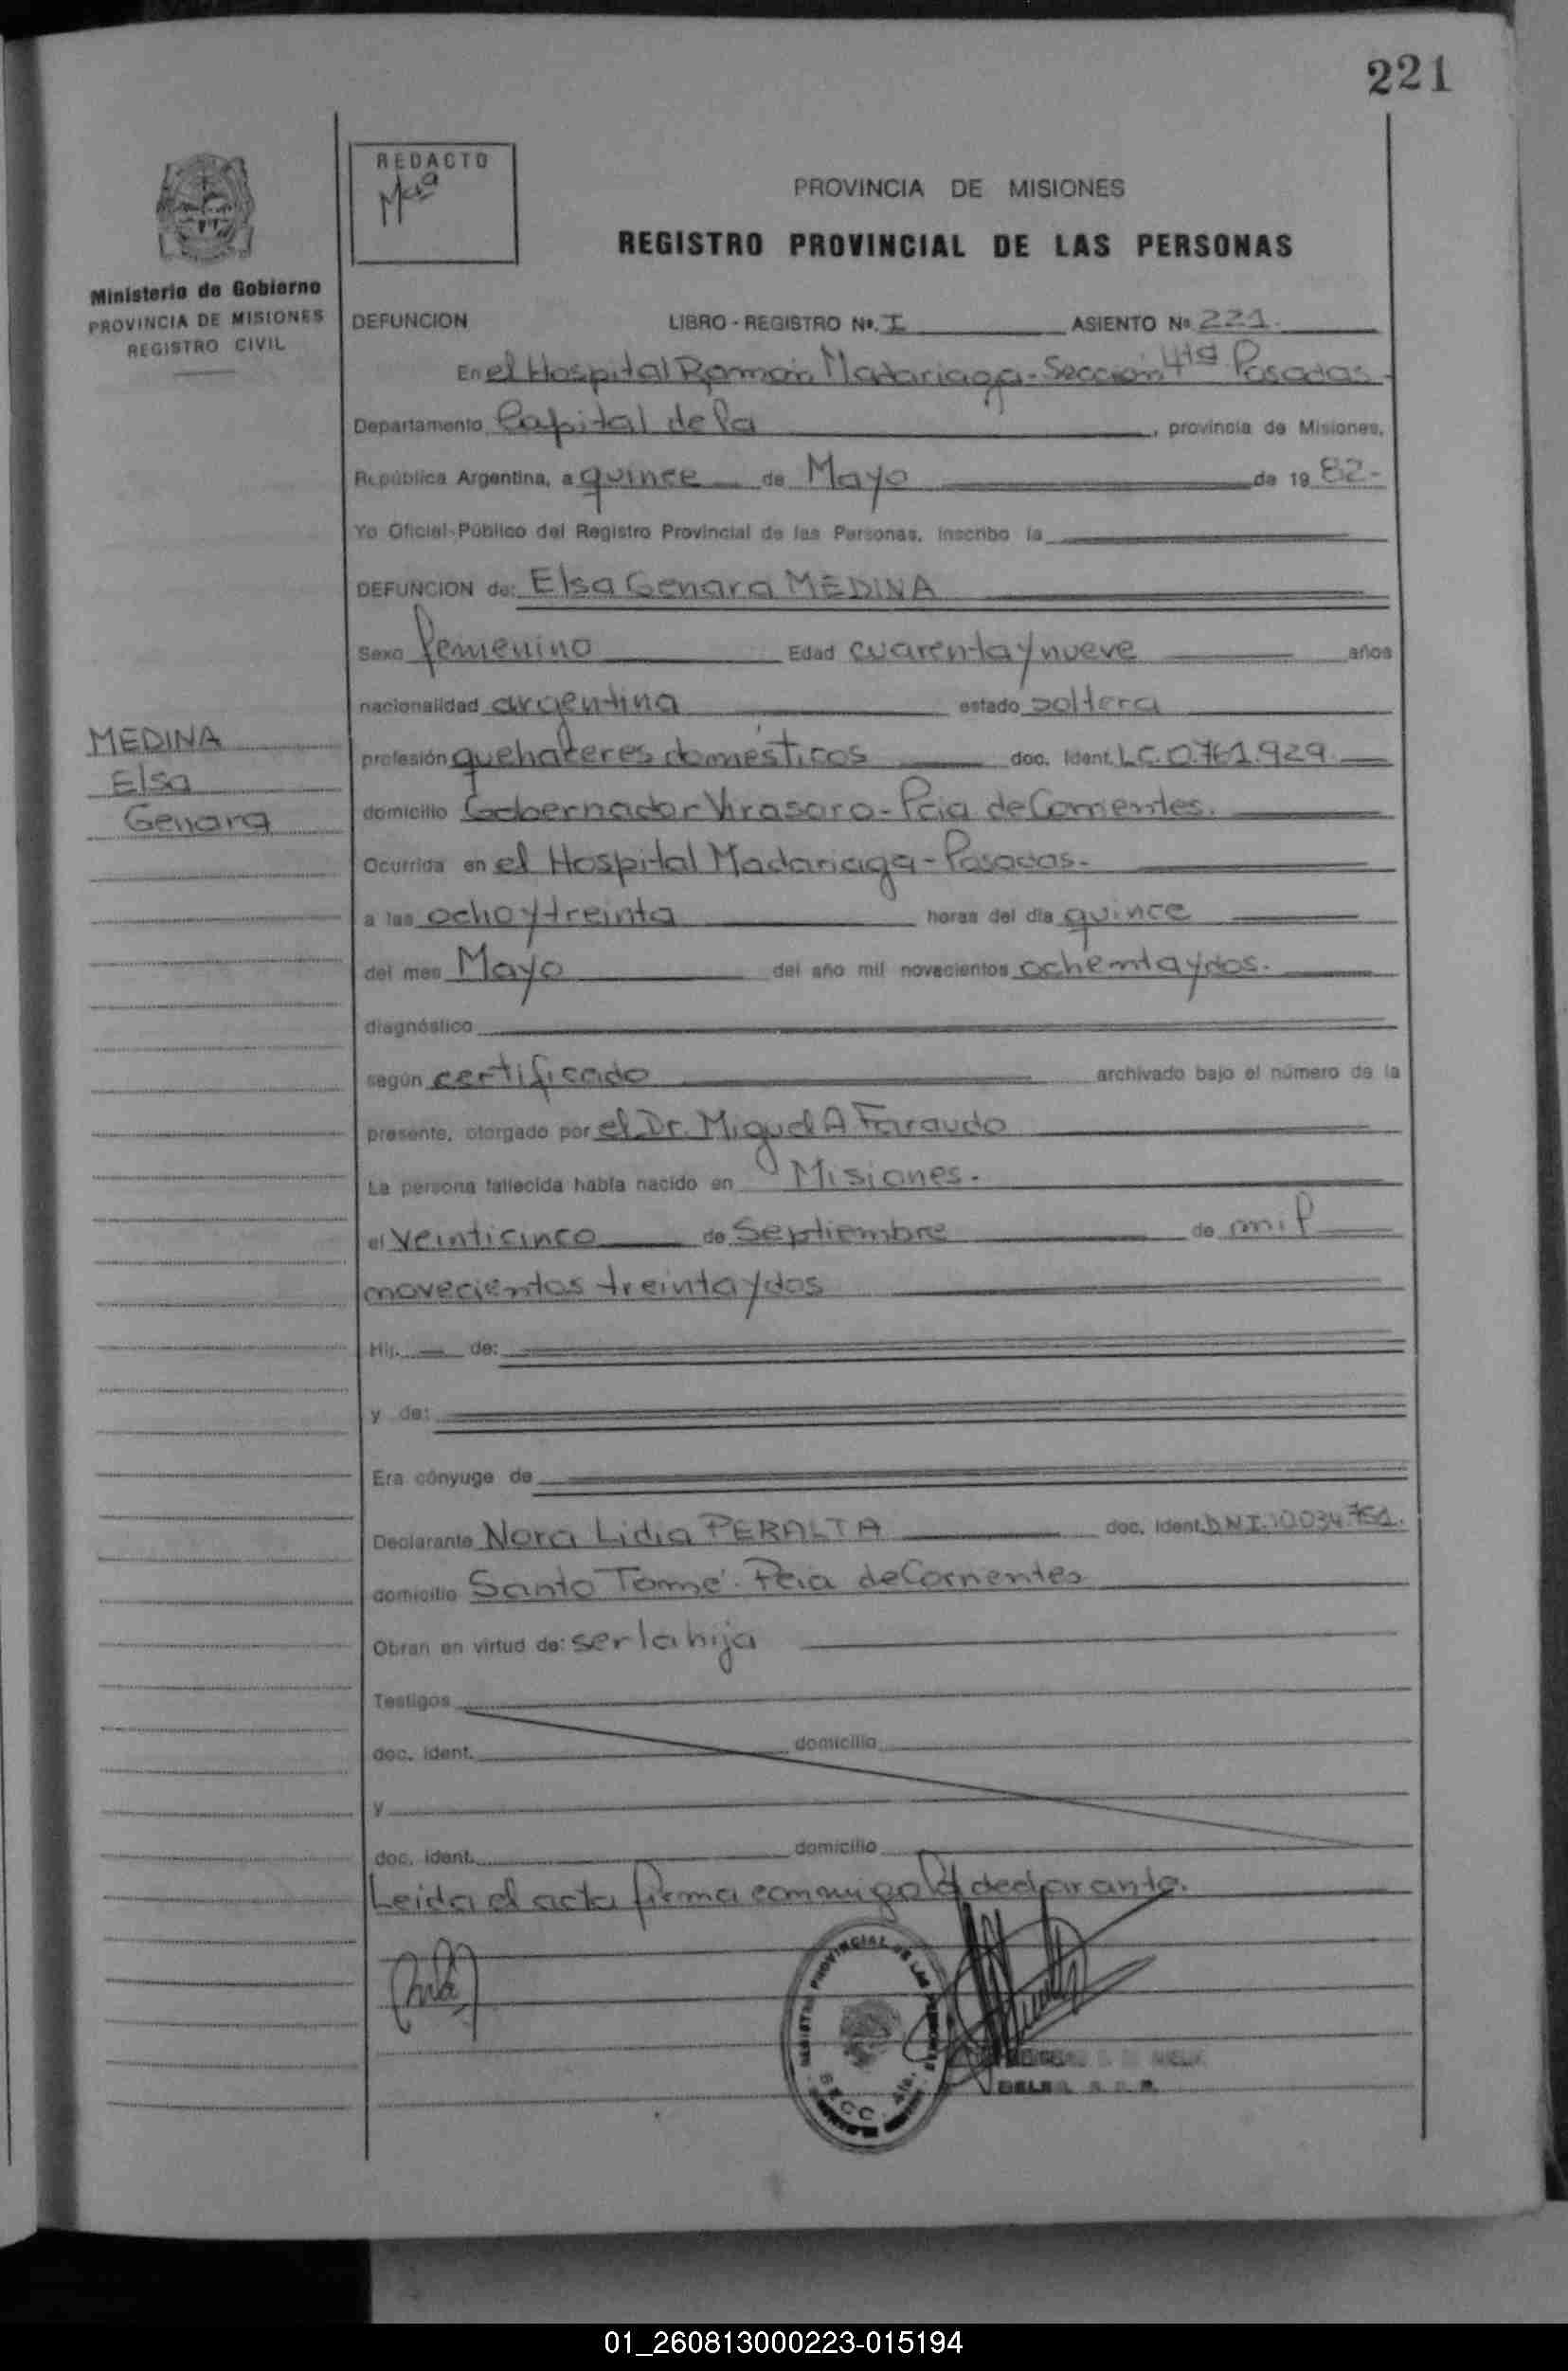 221
REDACTO
Mª
PROVINCIA DE MISIONES
REGISTRO PROVINCIAL DE LAS PERSONAS
Ministerio de Gobierno
PROVINCIA DE MISIONES
REGISTRO CIVIL
DEFUNCION LIBRO - REGISTRO Nº. I ASIENTO Nº 221.
En el Hospital Ramón Madariaga - Sección 4ta Posadas
Departamento Capital de la , provincia de Misiones,
República Argentina, a quince de Mayo de 19 82-
Yo Oficial Público del Registro Provincial de las Personas, inscribo la
DEFUNCION de: Elsa Genara MEDINA
Sexo femenino Edad cuarenta y nueve años
nacionalidad argentina estado soltera
MEDINA
Elsa
Genara
profesión quehaceres domésticos doc. Ident. L.C. 0.761.929.
domicilio Gobernador Virasoro - Pcia de Corrientes.
Ocurrida en el Hospital Madariaga - Posadas.
a las ocho y treinta horas del día quince
del mes Mayo del año mil novecientos ochenta y dos.
diagnóstico
según certificado archivado bajo el número de la
presente, otorgado por el Dr. Miguel A Faraudo
La persona fallecida había nacido en Misiones.
el veinticinco de Septiembre de mil
novecientos treinta y dos
Hij. de:
y de:
Era cónyuge de
Declarante Nora Lidia PERALTA doc. Ident. D.N.I. 10034751.
domicilio Santo Tomé. Pcia de Corrientes
Obran en virtud de: ser la hija
Testigos
doc. Ident. domicilio
y
doc. ident. domicilio
Leida el acta firma conmigo la declarante.
REGISTRO PROVINCIAL DE LAS PERSONAS
SECC. 4ta.
01_260813000223-015194